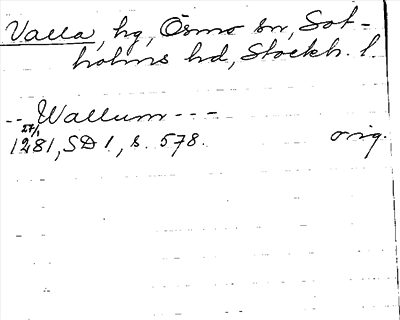 Valla, hg, Ösmo sn, Sot-
holms hd, Stockh. l.
-- Wallum ---
27/1
1281, SD 1, s. 578. orig.